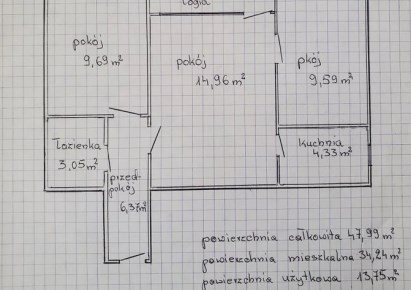 logia
pokój
9,69 m²
pokój
14,96 m²
pkój
9,59 m²
Łazienka
3,05 m²
kuchnia
4,33 m²
przed-
pokój
6,37 m²
powierzchnia całkowita 47,99 m²
powierzchnia mieszkalna 34,24 m²
powierzchnia użytkowa 13,75 m²